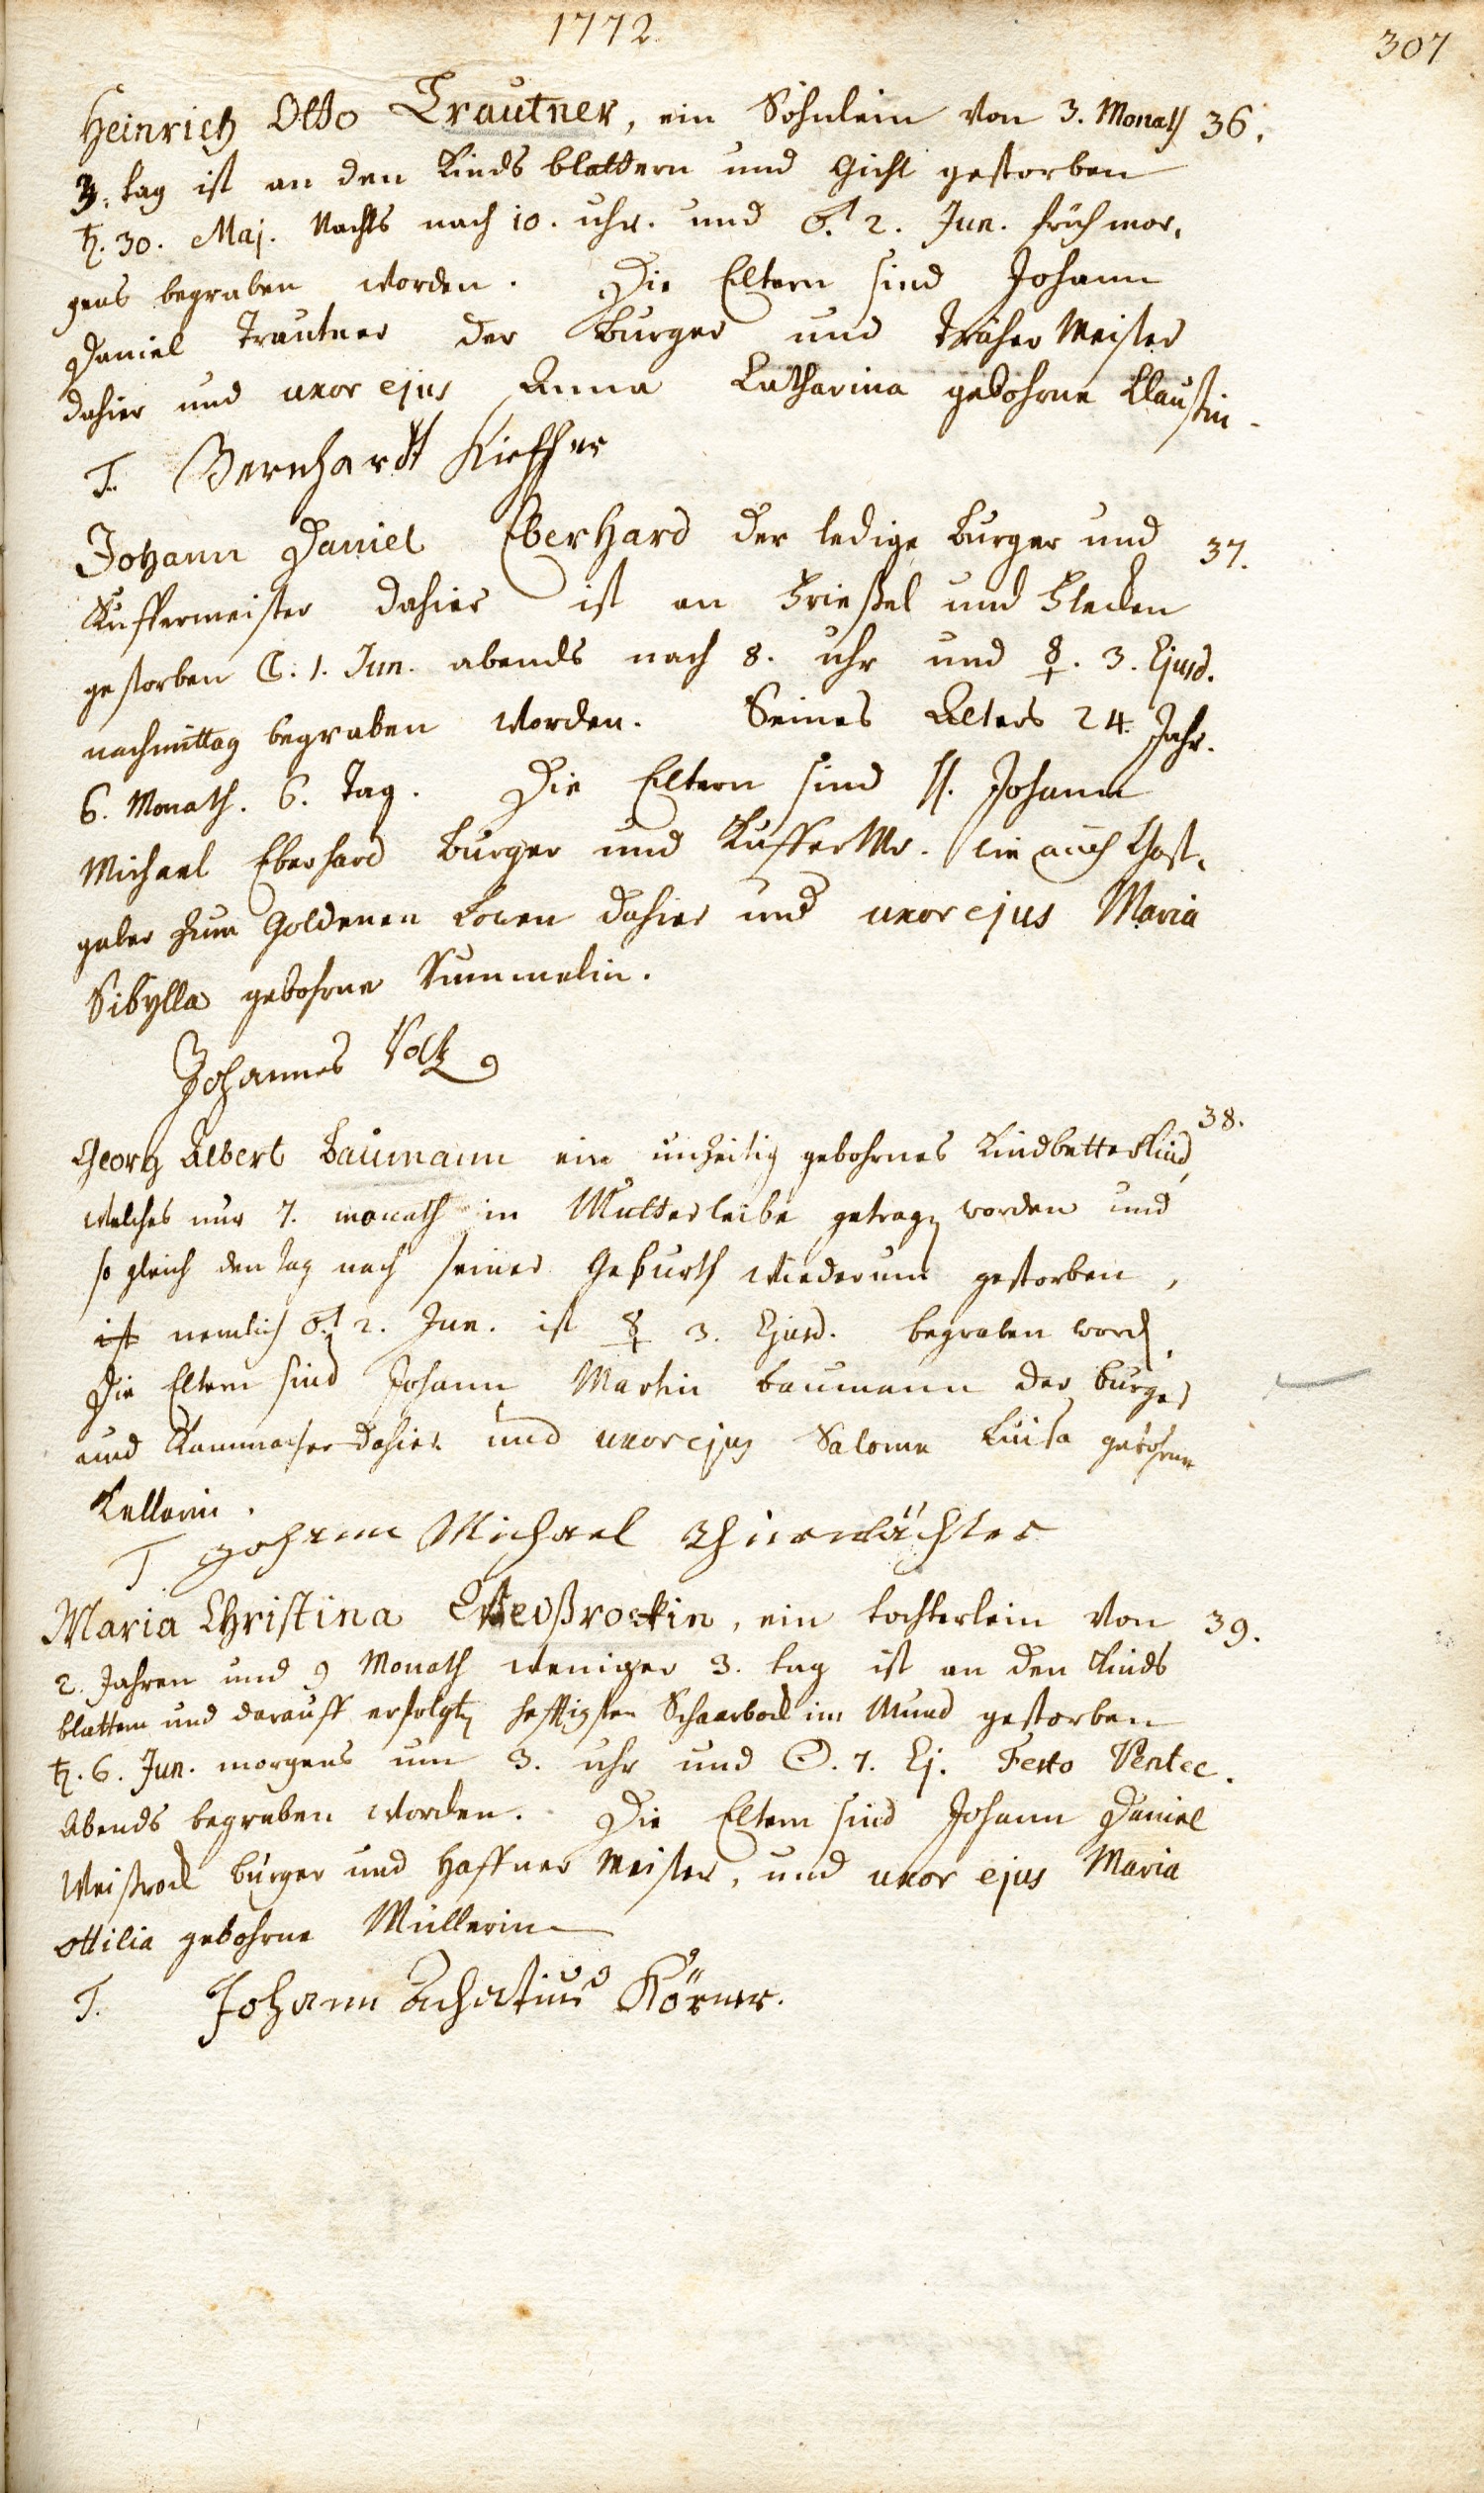 1772.
307
Heinrich Otto Trautner, ein Söhnlein von 3. Monath 36.
3. tag ist an den Kinds blattern und Gicht gestorben
♄. 30. Maj. Nachts nach 10. uhr. und ♂. 2. Jun. früh mor,
gens begraben worden. Die Eltern sind Johann
Daniel Trautner der Burger und Träher Meister
dahier und uxor ejus Anna Catharina gebohrne Claußin.
T. Bernhardt Kieffer
Johann Daniel Eberhard der ledige Burger und 37.
Kuffermeister dahier ist an Frießel und Flecken
gestorben ☾. 1. Jun. abends nach 8. uhr und ☿. 3. Ejusd.
nachmittag begraben worden. Seines Alters 24. Jahr.
6. Monath. 6. Tag. Die Eltern sind H. Johann
Michael Eberhard Burger und Kuffer Mr. wie auch Gast,
geber zum Goldenen Löwen dahier und uxor ejus Maria
Sibylla gebohrne Kummelin.
Johannes Voltz
38.
Georg Albert Baumann ein unzeitig gebohrnes Kindbetterkind,
welches nur 7. monath in Mutterleibe getragen worden und
so gleich den tag nach seiner Geburth wiederum gestorben,
ist nemlich ♂. 2. Jun. ist ☿ 3. Ejusd. begraben word.
Die Eltern sind Johann Martin Baumann der burger
und Kammacher dahier und uxor ejus Salome Luisa gebohrne
Kellerin.
T Johann Michael Thierwächter
Maria Christina Weißrockin, ein tochterlein von 39.
2. Jahren und 9 Monath weniger 3. tag ist an den Kinds
blattern und darauff erfolgten hefftigsten Schaarbock im Mund gestorben
♄. 6. Jun. morgens um 3. uhr und ☉. 7. Ej. Festo Pentec.
Abends begraben worden. Die Eltern sind Johann Daniel
Weißrock burger und Haffner Meister, und uxor ejus Maria
Ottilia gebohrne Müllerin
T. Johann Achatius Körner.